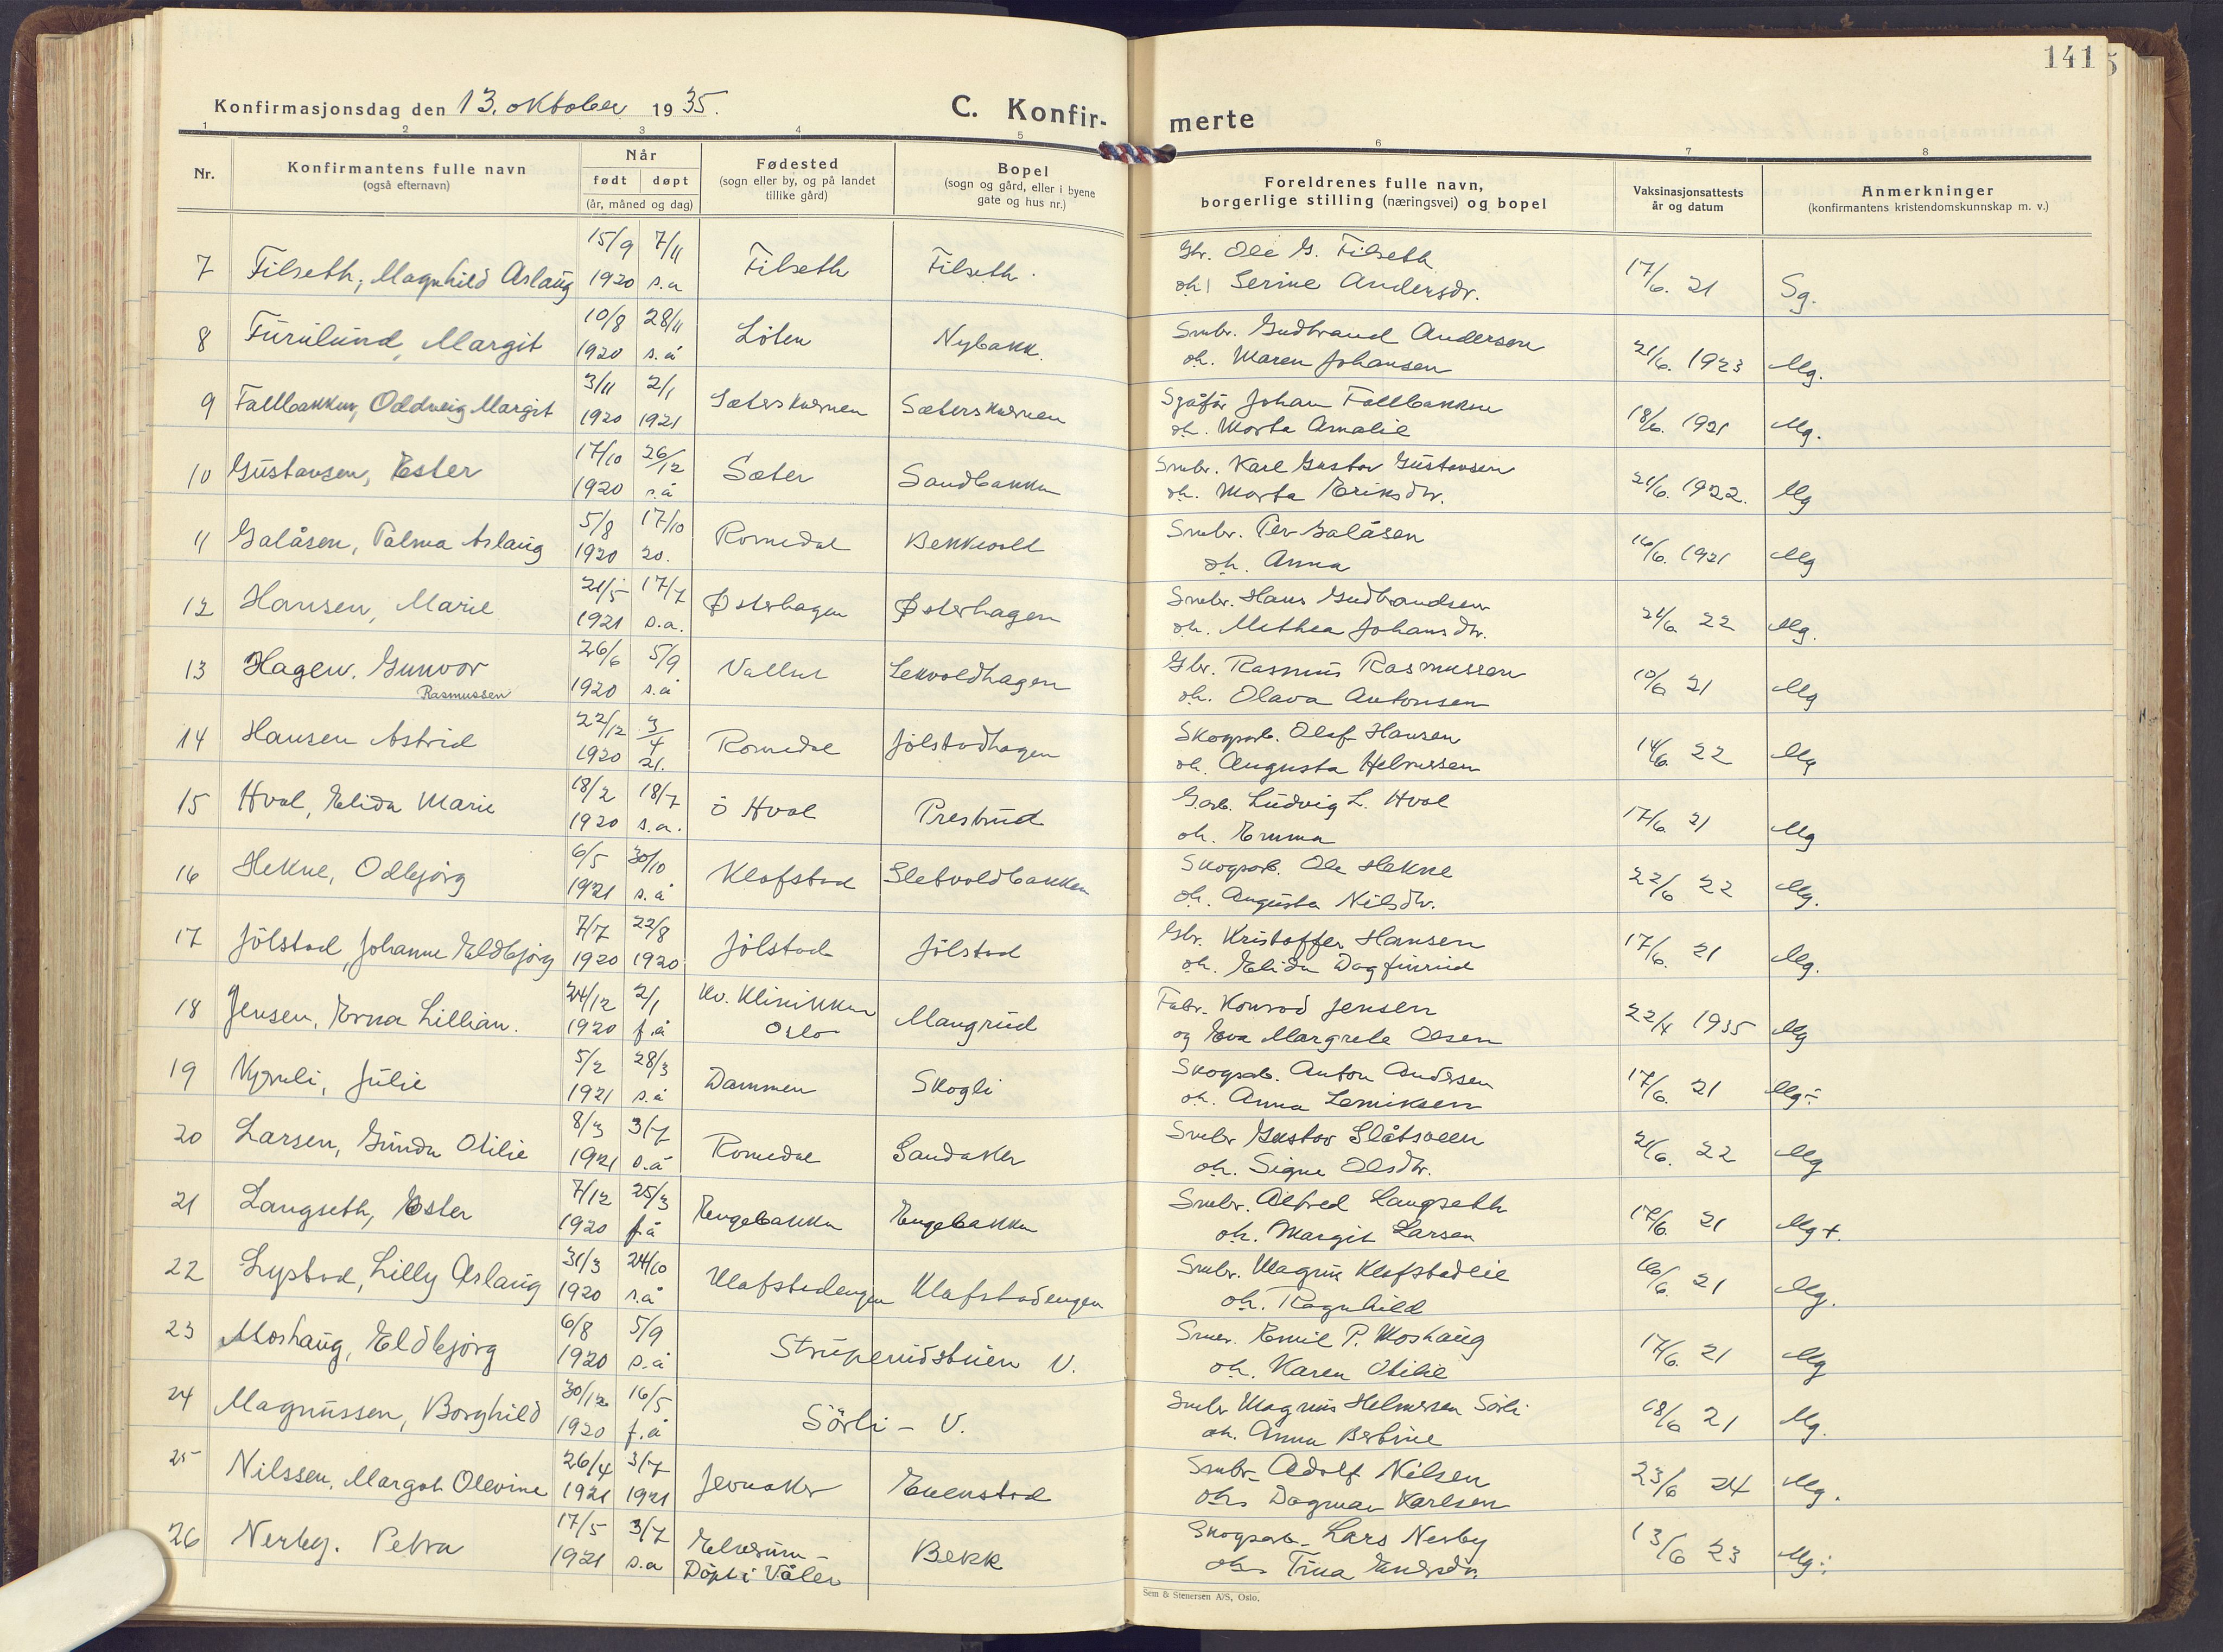 141
Konfirmasjonsdag den 13. oktober 1935.
C. Konfir-
merte
1 2 3 4 5 6 7 8
Nr.
Konfirmantens fulle navn
(også efternavn)
Når
født døpt
(år, måned og dag)
Fødested
(sogn eller by, og på landet
tillike gård)
Bopel
(sogn og gård, eller i byene
gate og hus nr.)
Foreldrenes fulle navn,
borgerlige stilling (næringsvei) og bopel
Vaksinasjonsattests
år og datum
Anmerkninger
(konfirmantens kristendomskunnskap m. v.)
15/9 7/11 Gbr. Ole G. Filseth
7 Filseth, Magnhild Aslaug 1920 s.a Filseth Filseth. oh. Serine Andersdr. 17/6. 21 Sg.
10/8 28/11 Smbr. Gudbrand Andersen
8 Furulund, Margit 1920 s.å Löten Nybakk. oh. Maren Johansen 21/6. 1923 Mg.
3/11 2/1 Johan Fallbakken
9 Fallbakken, Oddveig Margit 1920 1921 Sæterskvernen Sæterskvernen oh. Marta Amalie 18/6. 1921 Mg.
17/10 26/12 Smbr. Karl Gustav Gustavsen
10 Gustavsen, Ester 1920 s.å Sæter Sandbakken oh. Marta Eriksdtr. 21/6. 1922. Mg
5/8 17/10 Smbr. Per Galåsen
11 Galåsen, Palma Aslaug 1920 20. Romedal Bekkevold oh. Anna 16/6. 1921 Mg
21/5 17/7 Smbr. Hans Gudbrandsen
12 Hansen, Marie 1921 s.a. Østerhagen Østerhagen oh. Mathea Johansdtr. 24/6 22 Mg.
26/6 5/9 Gbr. Rasmus Rasmussen
13 Hagen, Gunvor 1920 s.å Vallset Lekvoldhagen oh. Olava Antonsen 10/6 21 Mg
Rasmussen
22/12 3/4 Skogsarb. Olaf Hansen
14 Hansen Astrid 1920 21. Romedal Jölstadhagen oh. Augusta Helmersen 14/6. 22 Mg
18/2 18/7 Garb. Ludvig L. Hval
15 Hval, Elida Marie 1920 s.a. ö Hval Prestrud oh. Emma 17/6. 21 Mg
6/5 30/10 Skogsarb. Ole Hekne
16 Hekne, Odbjörg 1921 s.å Klofstad Sletvoldbakken oh. Augusta Nilsdtr. 22/6 22 Mg.
7/7 22/8 Gbr. Kristoffer Hansen
17 Jölstad, Johanne Eldbjörg 1920 1920 Jölstad Jölstad oh. Elida Dagfinrud 17/6. 21 Mg.
24/12 2/1 Kv. Klinikken Fabr. Konrad Jensen
18 Jensen, Erna Lillian. 1920 f.å Oslo Mangrud og Eva Margrete Olsen 22/4 1935 Mg
5/2 28/3 Skogsarb. Anton Andersen
19 Julie 1921 s.å Dammen Skogli oh. Anna 17/6. 21 Mg÷
8/3 3/7 Smbr Gustav Slåtsveen
20 Larsen, Gunda Otilie 1921 s.å Romedal Sandaker oh. Signe Olsdtr. 21/6. 22 Mg
7/12 25/3 Smbr. Alfred Langseth
21 Langseth, Ester 1920 f.å Engebakken Engebakken oh. Margit Larsen 17/6. 21 Mg+.
31/3 24/10 Smbr. Magnus Klofstadlie
22 Lystad, Lilly Aslaug 1920 s.å Klafstadengen Klafstadengen oh. Ragnhild 16/6. 21 Mg.
6/8 5/9 Smbr. Emil P. Moshaug
23 Moshaug, Eldbjörg 1920 s.å Struperudstuen V. oh. Karen Otilie 17/6. 21 Mg
30/12 16/5 Smbr Magnus Helmersen Sörli
24 Magnussen, Borghild 1920 f.å Sörli - V. oh. Anna Bertine 18/6 21 Mg.
26/4 3/7 Smbr. Adolf Nilsen
25 Nilssen, Margot Olevine 1921 1921 Jevnaker Evenstad oh. Dagmar Karlsen 23/6 24 Mg.
17/5 3/7 Elverum - Skogsarb. Lars Nerby
26 Nerby. Petra 1921 s.a Döpt i Våler Bekk oh. Tina 13/6 23 Mg÷
Sem & Stenersen A/S, Oslo.